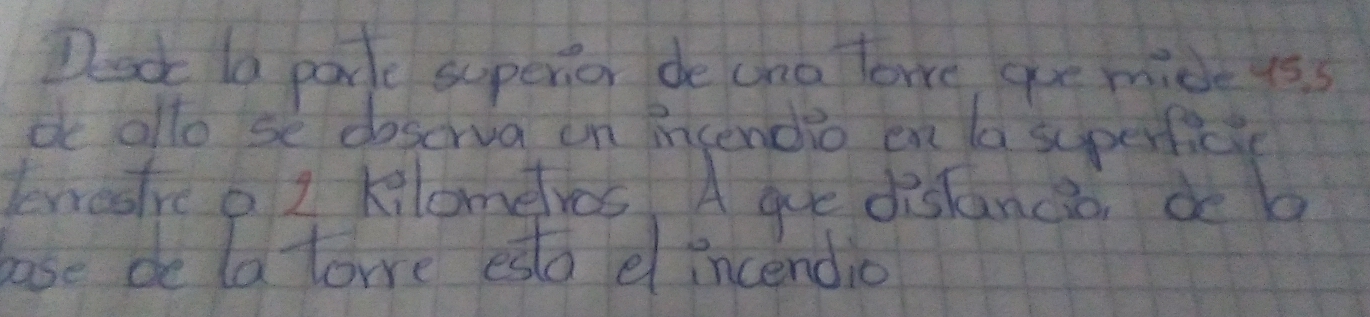 Desde la parte superior de una Torre, que mide 45.5
de alto se observa un incendio en la superficie
terrestre a 2 Kilometros, A que distancia, de la
base de la Torre esta el incendio